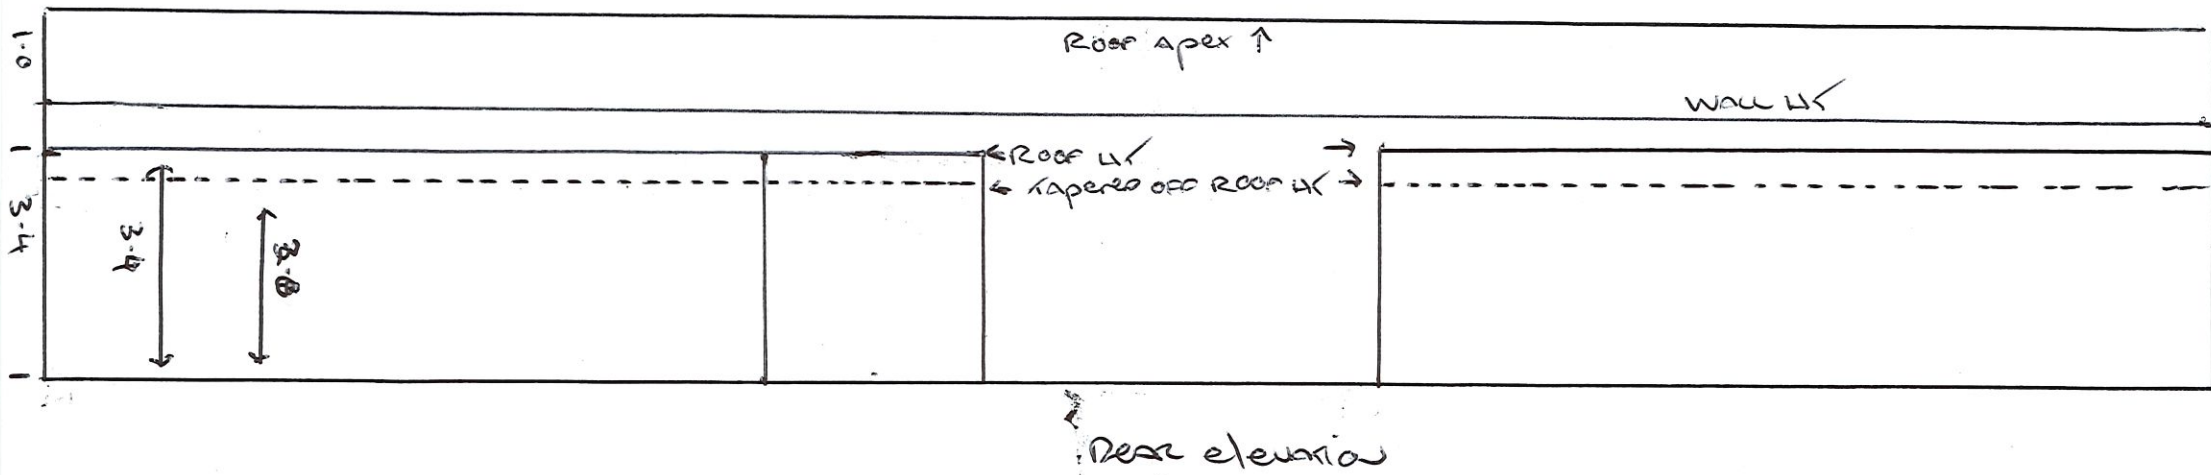 Roof Apex ↑
1.0
Wall Ht
←Roof Ht →
← Tapered off Roof Ht →
3.4
3.4
Rear elevation